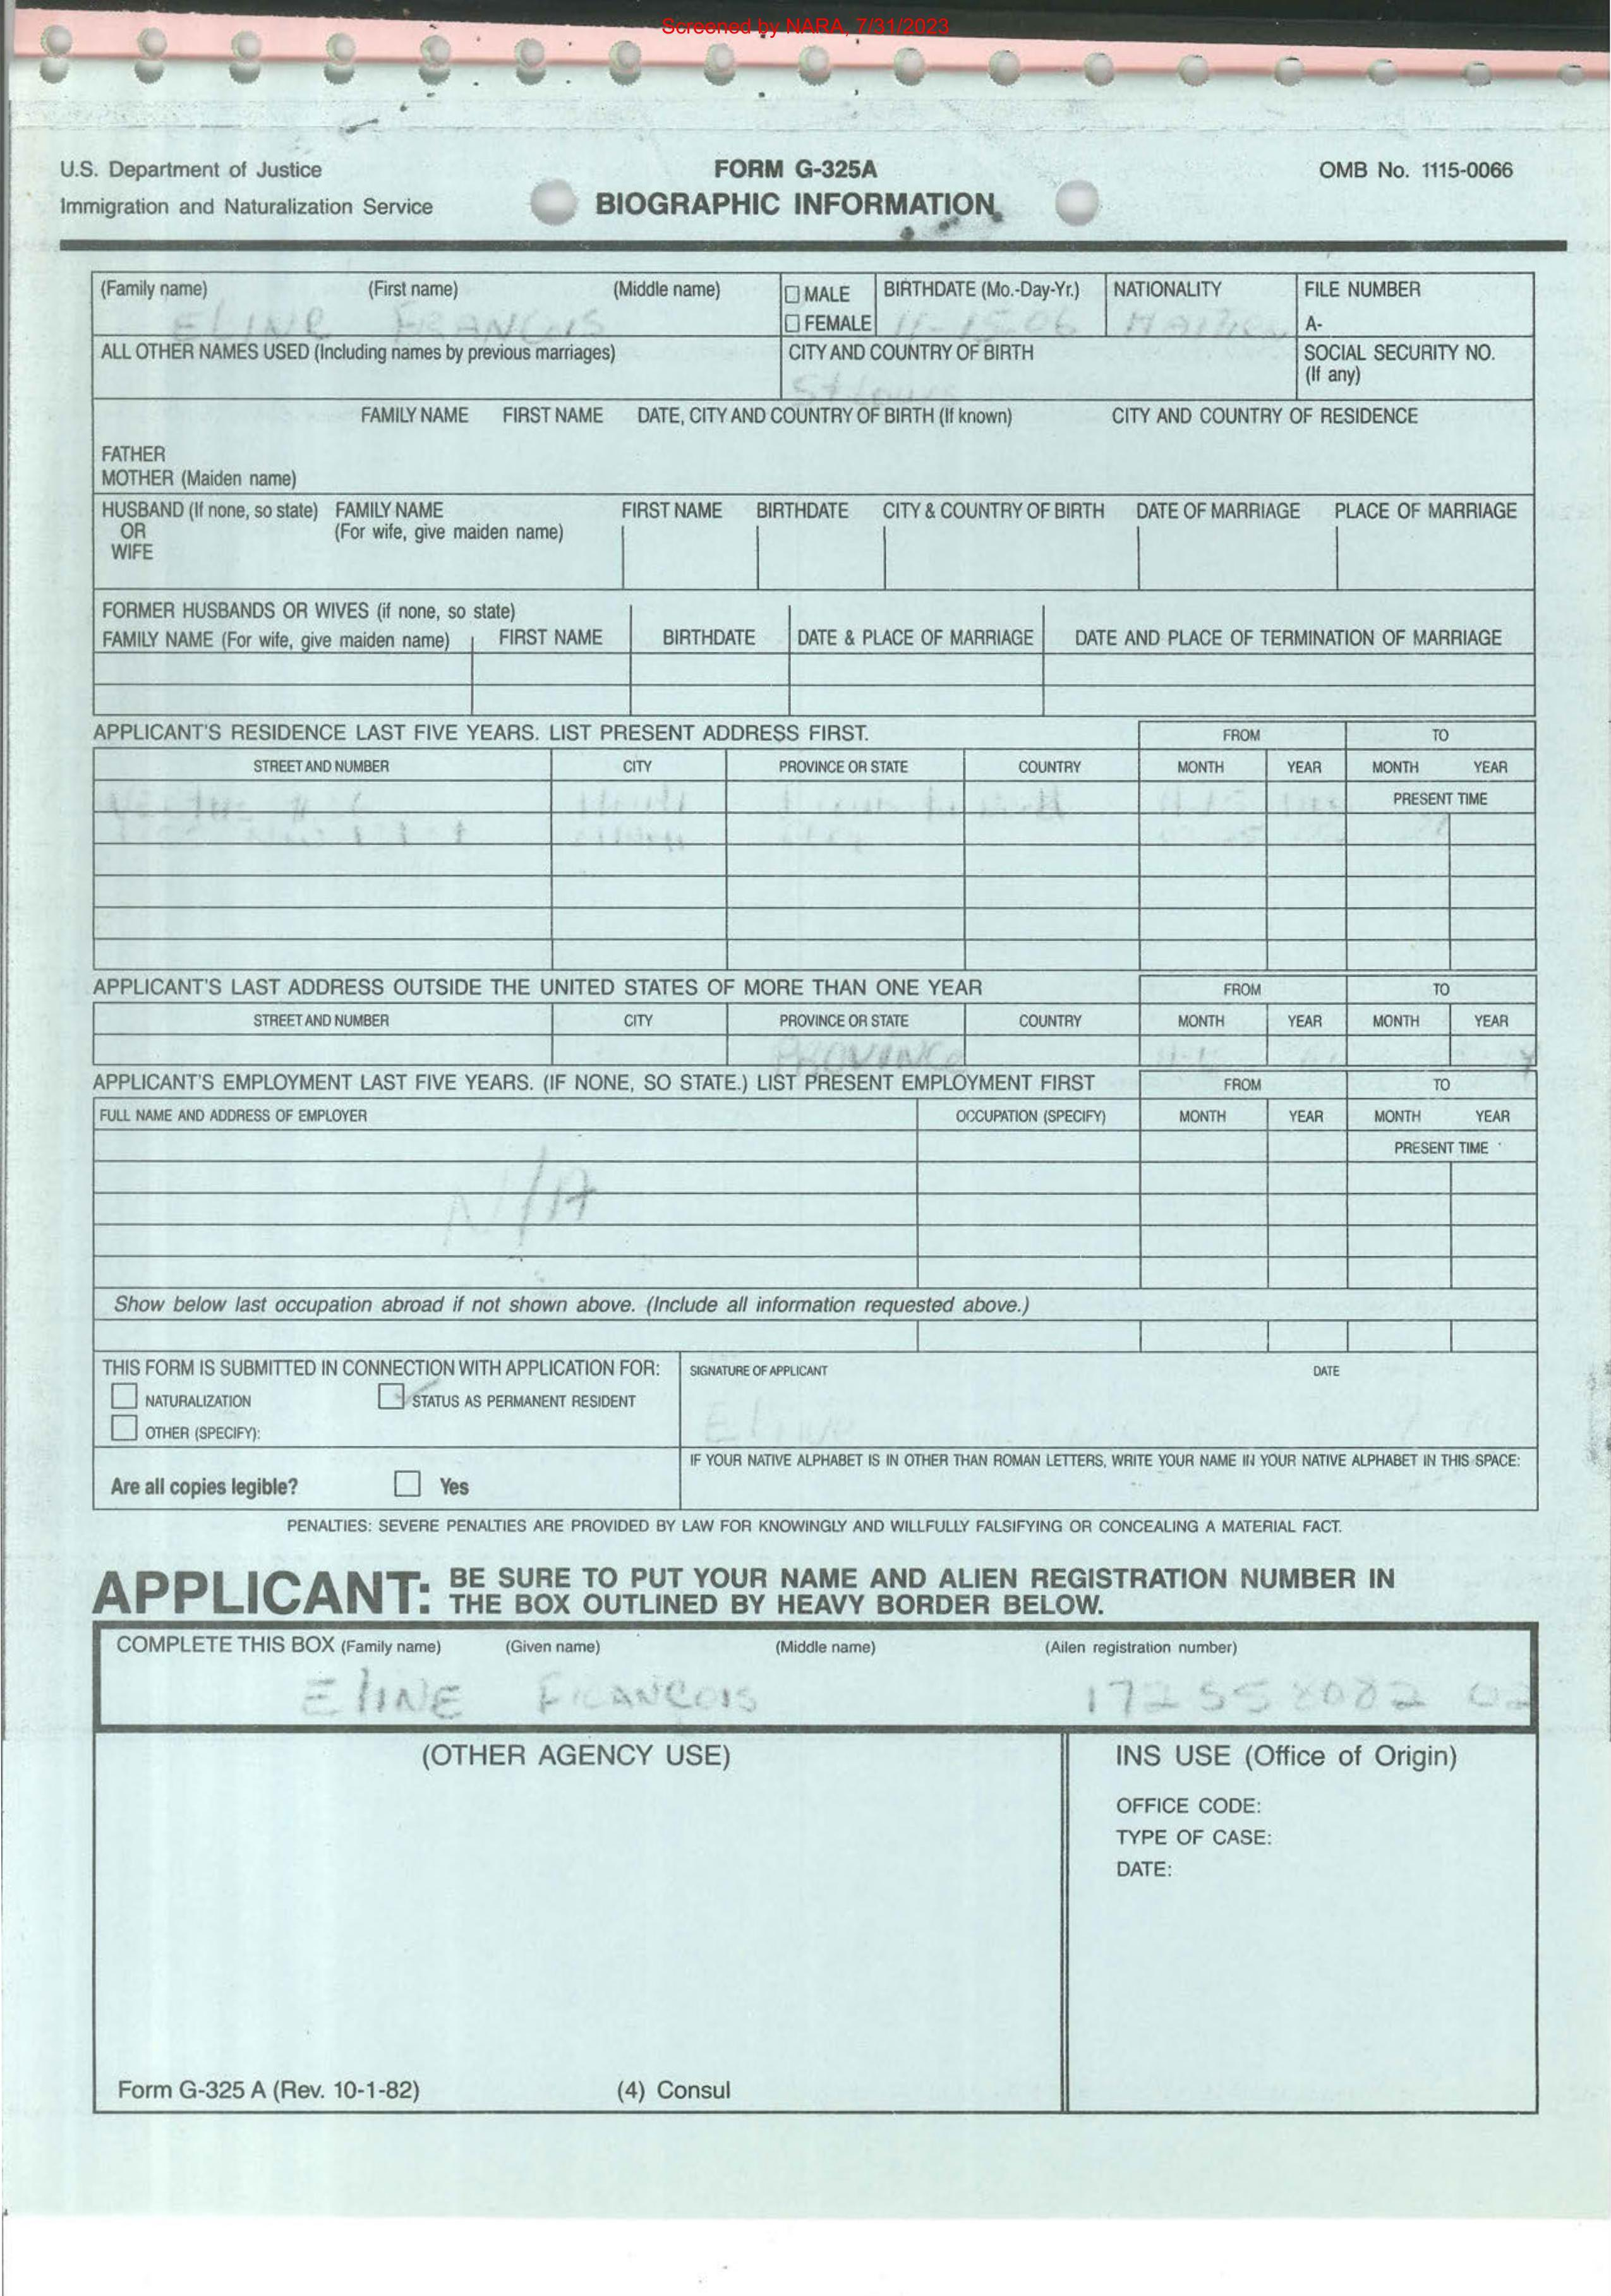 Screened by NARA, 7/31/2023
U.S. Department of Justice
Immigration and Naturalization Service
FORM G-325A
BIOGRAPHIC INFORMATION
OMB No. 1115-0066
(Family name) (First name) (Middle name)
ELINE FRANCOIS
☐ MALE
☐ FEMALE
BIRTHDATE (Mo.-Day-Yr.)
11-15-06
NATIONALITY
FILE NUMBER
A-
ALL OTHER NAMES USED (Including names by previous marriages)
CITY AND COUNTRY OF BIRTH
St Louis
SOCIAL SECURITY NO.
(If any)
FAMILY NAME FIRST NAME DATE, CITY AND COUNTRY OF BIRTH (If known) CITY AND COUNTRY OF RESIDENCE
FATHER
MOTHER (Maiden name)
HUSBAND (If none, so state) FAMILY NAME FIRST NAME BIRTHDATE CITY & COUNTRY OF BIRTH DATE OF MARRIAGE PLACE OF MARRIAGE
OR (For wife, give maiden name)
WIFE
FORMER HUSBANDS OR WIVES (if none, so state)
FAMILY NAME (For wife, give maiden name) FIRST NAME BIRTHDATE DATE & PLACE OF MARRIAGE DATE AND PLACE OF TERMINATION OF MARRIAGE
APPLICANT'S RESIDENCE LAST FIVE YEARS. LIST PRESENT ADDRESS FIRST. FROM TO
STREET AND NUMBER CITY PROVINCE OR STATE COUNTRY MONTH YEAR MONTH YEAR
PRESENT TIME
APPLICANT'S LAST ADDRESS OUTSIDE THE UNITED STATES OF MORE THAN ONE YEAR FROM TO
STREET AND NUMBER CITY PROVINCE OR STATE COUNTRY MONTH YEAR MONTH YEAR
PROVINCE
APPLICANT'S EMPLOYMENT LAST FIVE YEARS. (IF NONE, SO STATE.) LIST PRESENT EMPLOYMENT FIRST FROM TO
FULL NAME AND ADDRESS OF EMPLOYER OCCUPATION (SPECIFY) MONTH YEAR MONTH YEAR
PRESENT TIME
N/A
Show below last occupation abroad if not shown above. (Include all information requested above.)
THIS FORM IS SUBMITTED IN CONNECTION WITH APPLICATION FOR:
☐ NATURALIZATION ☑ STATUS AS PERMANENT RESIDENT
☐ OTHER (SPECIFY):
SIGNATURE OF APPLICANT DATE
Eline
Are all copies legible? ☐ Yes
IF YOUR NATIVE ALPHABET IS IN OTHER THAN ROMAN LETTERS, WRITE YOUR NAME IN YOUR NATIVE ALPHABET IN THIS SPACE:
PENALTIES: SEVERE PENALTIES ARE PROVIDED BY LAW FOR KNOWINGLY AND WILLFULLY FALSIFYING OR CONCEALING A MATERIAL FACT.
APPLICANT: BE SURE TO PUT YOUR NAME AND ALIEN REGISTRATION NUMBER IN
THE BOX OUTLINED BY HEAVY BORDER BELOW.
COMPLETE THIS BOX (Family name) (Given name) (Middle name) (Alien registration number)
ElINE FRANCOIS 172558082 02
(OTHER AGENCY USE)
INS USE (Office of Origin)
OFFICE CODE:
TYPE OF CASE:
DATE:
Form G-325 A (Rev. 10-1-82) (4) Consul